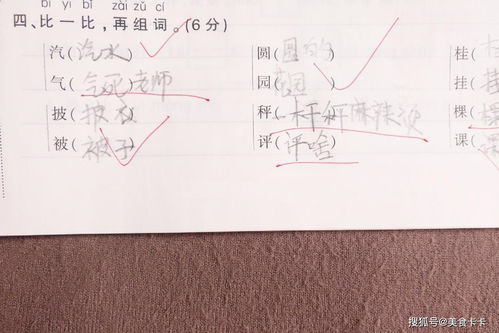 bǐ yì bǐ zài zǔ cí
四、比一比,再组词。(6分)
汽(汽水) 圆(圆的) 桂(
气(气死)老师 园( 挂(
披(披衣) 秤(一杆秤麻辣烫 棵(
被(被子) 评(评啥) 课(
搜狐号@美食卡卡